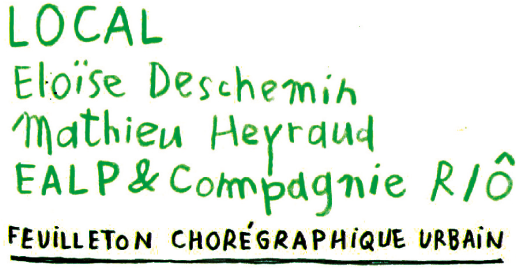 LOCAL
Eloïse Deschemin
Mathieu Heyraud
EALP & Compagnie R/Ô
FEUILLETON CHORÉGRAPHIQUE URBAIN